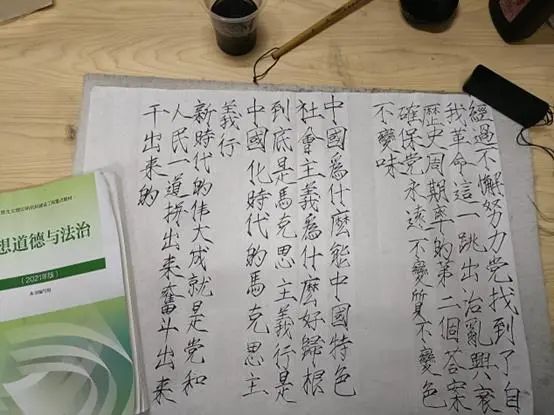 經過不懈努力党找到了自
我革命這一跳出治亂興衰
歷史周期率的第二個答案
確保党永遠不變質不變色
不變味
中國爲什麼能中國特色
社會主義爲什麼好歸根
到底是馬克思主義行是
中國化時代的馬克思主
義行
新時代的伟大成就是党和
人民一道拚出來奮斗出來
干出來的
想道德与法治
(2021年版)
本书编写组